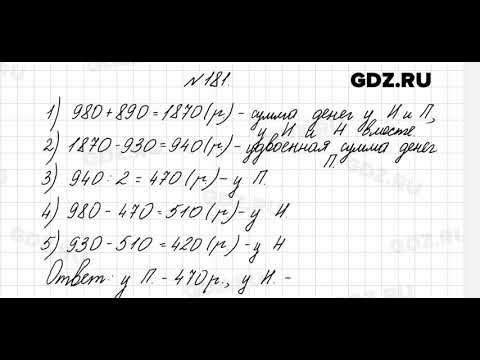 №181.
GDZ.RU
1) 980+890=1870(р)-сумма денег у И и П,
у И и Н вместе
2) 1870-930=940(р)-удвоенная сумма денег
П.
3) 940:2=470(р.)-у П.
4) 980-470=510(р)-у И.
5) 930-510=420(р)-у Н
Ответ: у П.-470р., у И.-